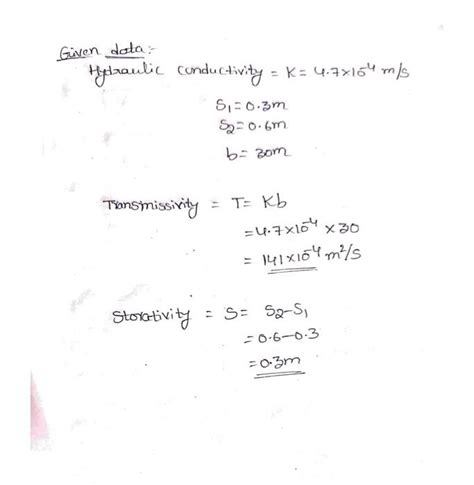 Given data:-
Hydraulic conductivity = K = 4.7×10⁻⁴ m/s
S₁ = 0.3m
S₂ = 0.6m
b = 30m
Transmissivity = T = Kb
= 4.7×10⁻⁴ × 30
= 141×10⁻⁴ m²/s
Storativity = S = S₂-S₁
= 0.6-0.3
= 0.3m